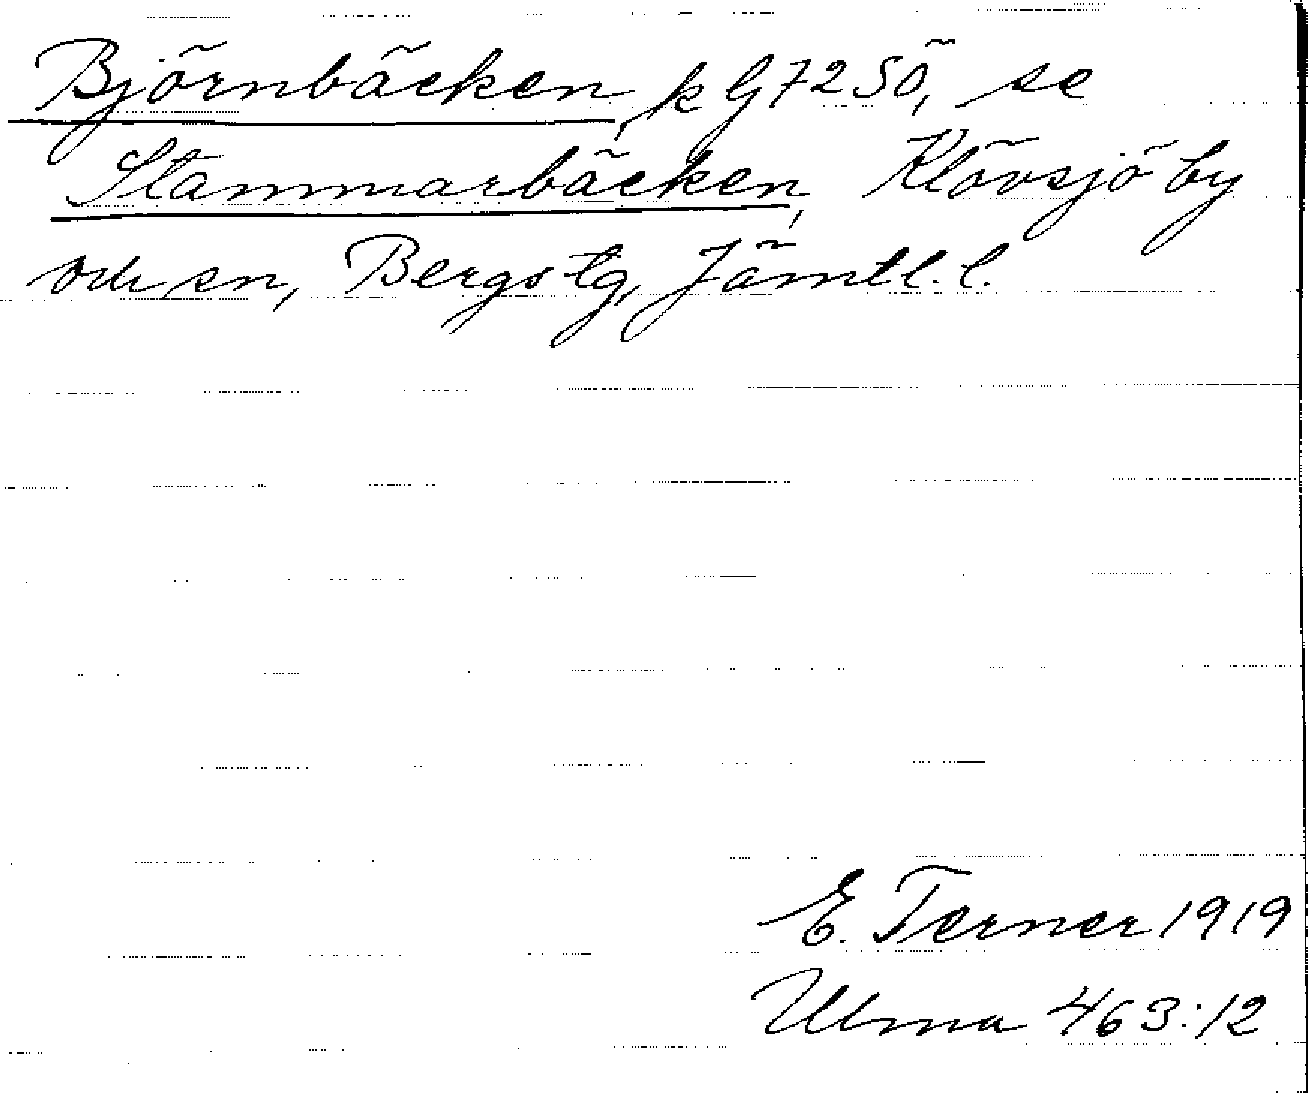 Björnbäcken, k G72SÖ, se
Stammarbäcken, Klövsjö by
och sn, Bergs tg, Jämtl. l.
E. Terner 1919
Ulma 463:12